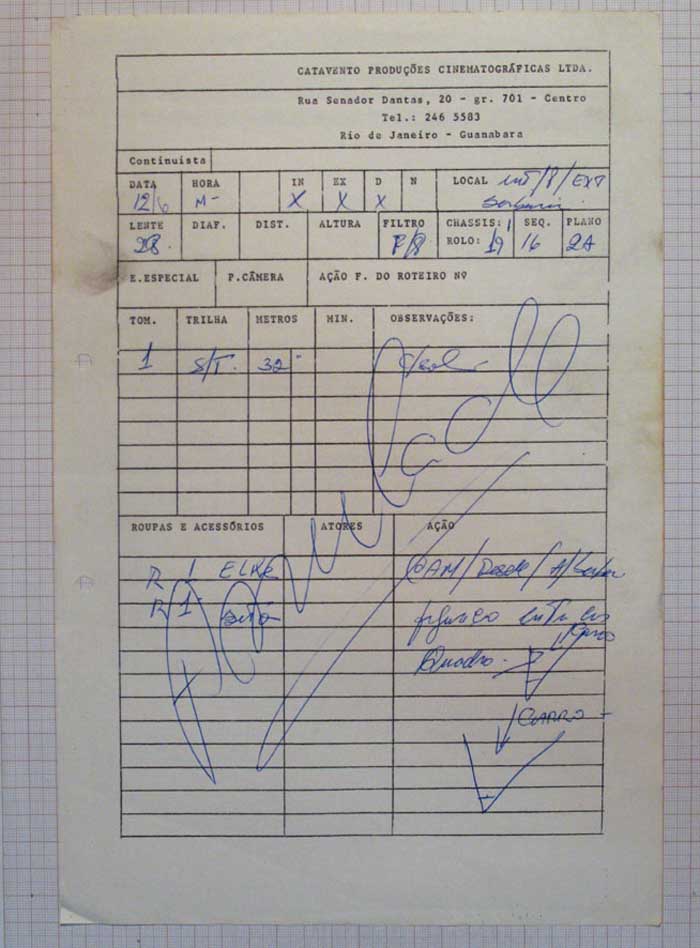 CATAVENTO PRODUÇÕES CINEMATOGRÁFICAS LTDA.
Rua Senador Dantas, 20 - gr. 701 - Centro
Tel.: 246 5583
Rio de Janeiro - Guanabara
Continuista
DATA HORA IN EX D N LOCAL INT/P/EXT
12/6 M- X X X
LENTE DIAF. DIST. ALTURA FILTRO CHASSIS: 1 SEQ. PLANO
28. P/8 ROLO: 19 16 2A
E.ESPECIAL P.CÂMERA AÇÃO F. DO ROTEIRO Nº
TOM. TRILHA METROS MIN. OBSERVAÇÕES:
1 S/T. 32-
ROUPAS E ACESSÓRIOS ATORES AÇÃO
R 1 ELKE CAM/Desde/A/
R 1
Quadro.
CARRO -